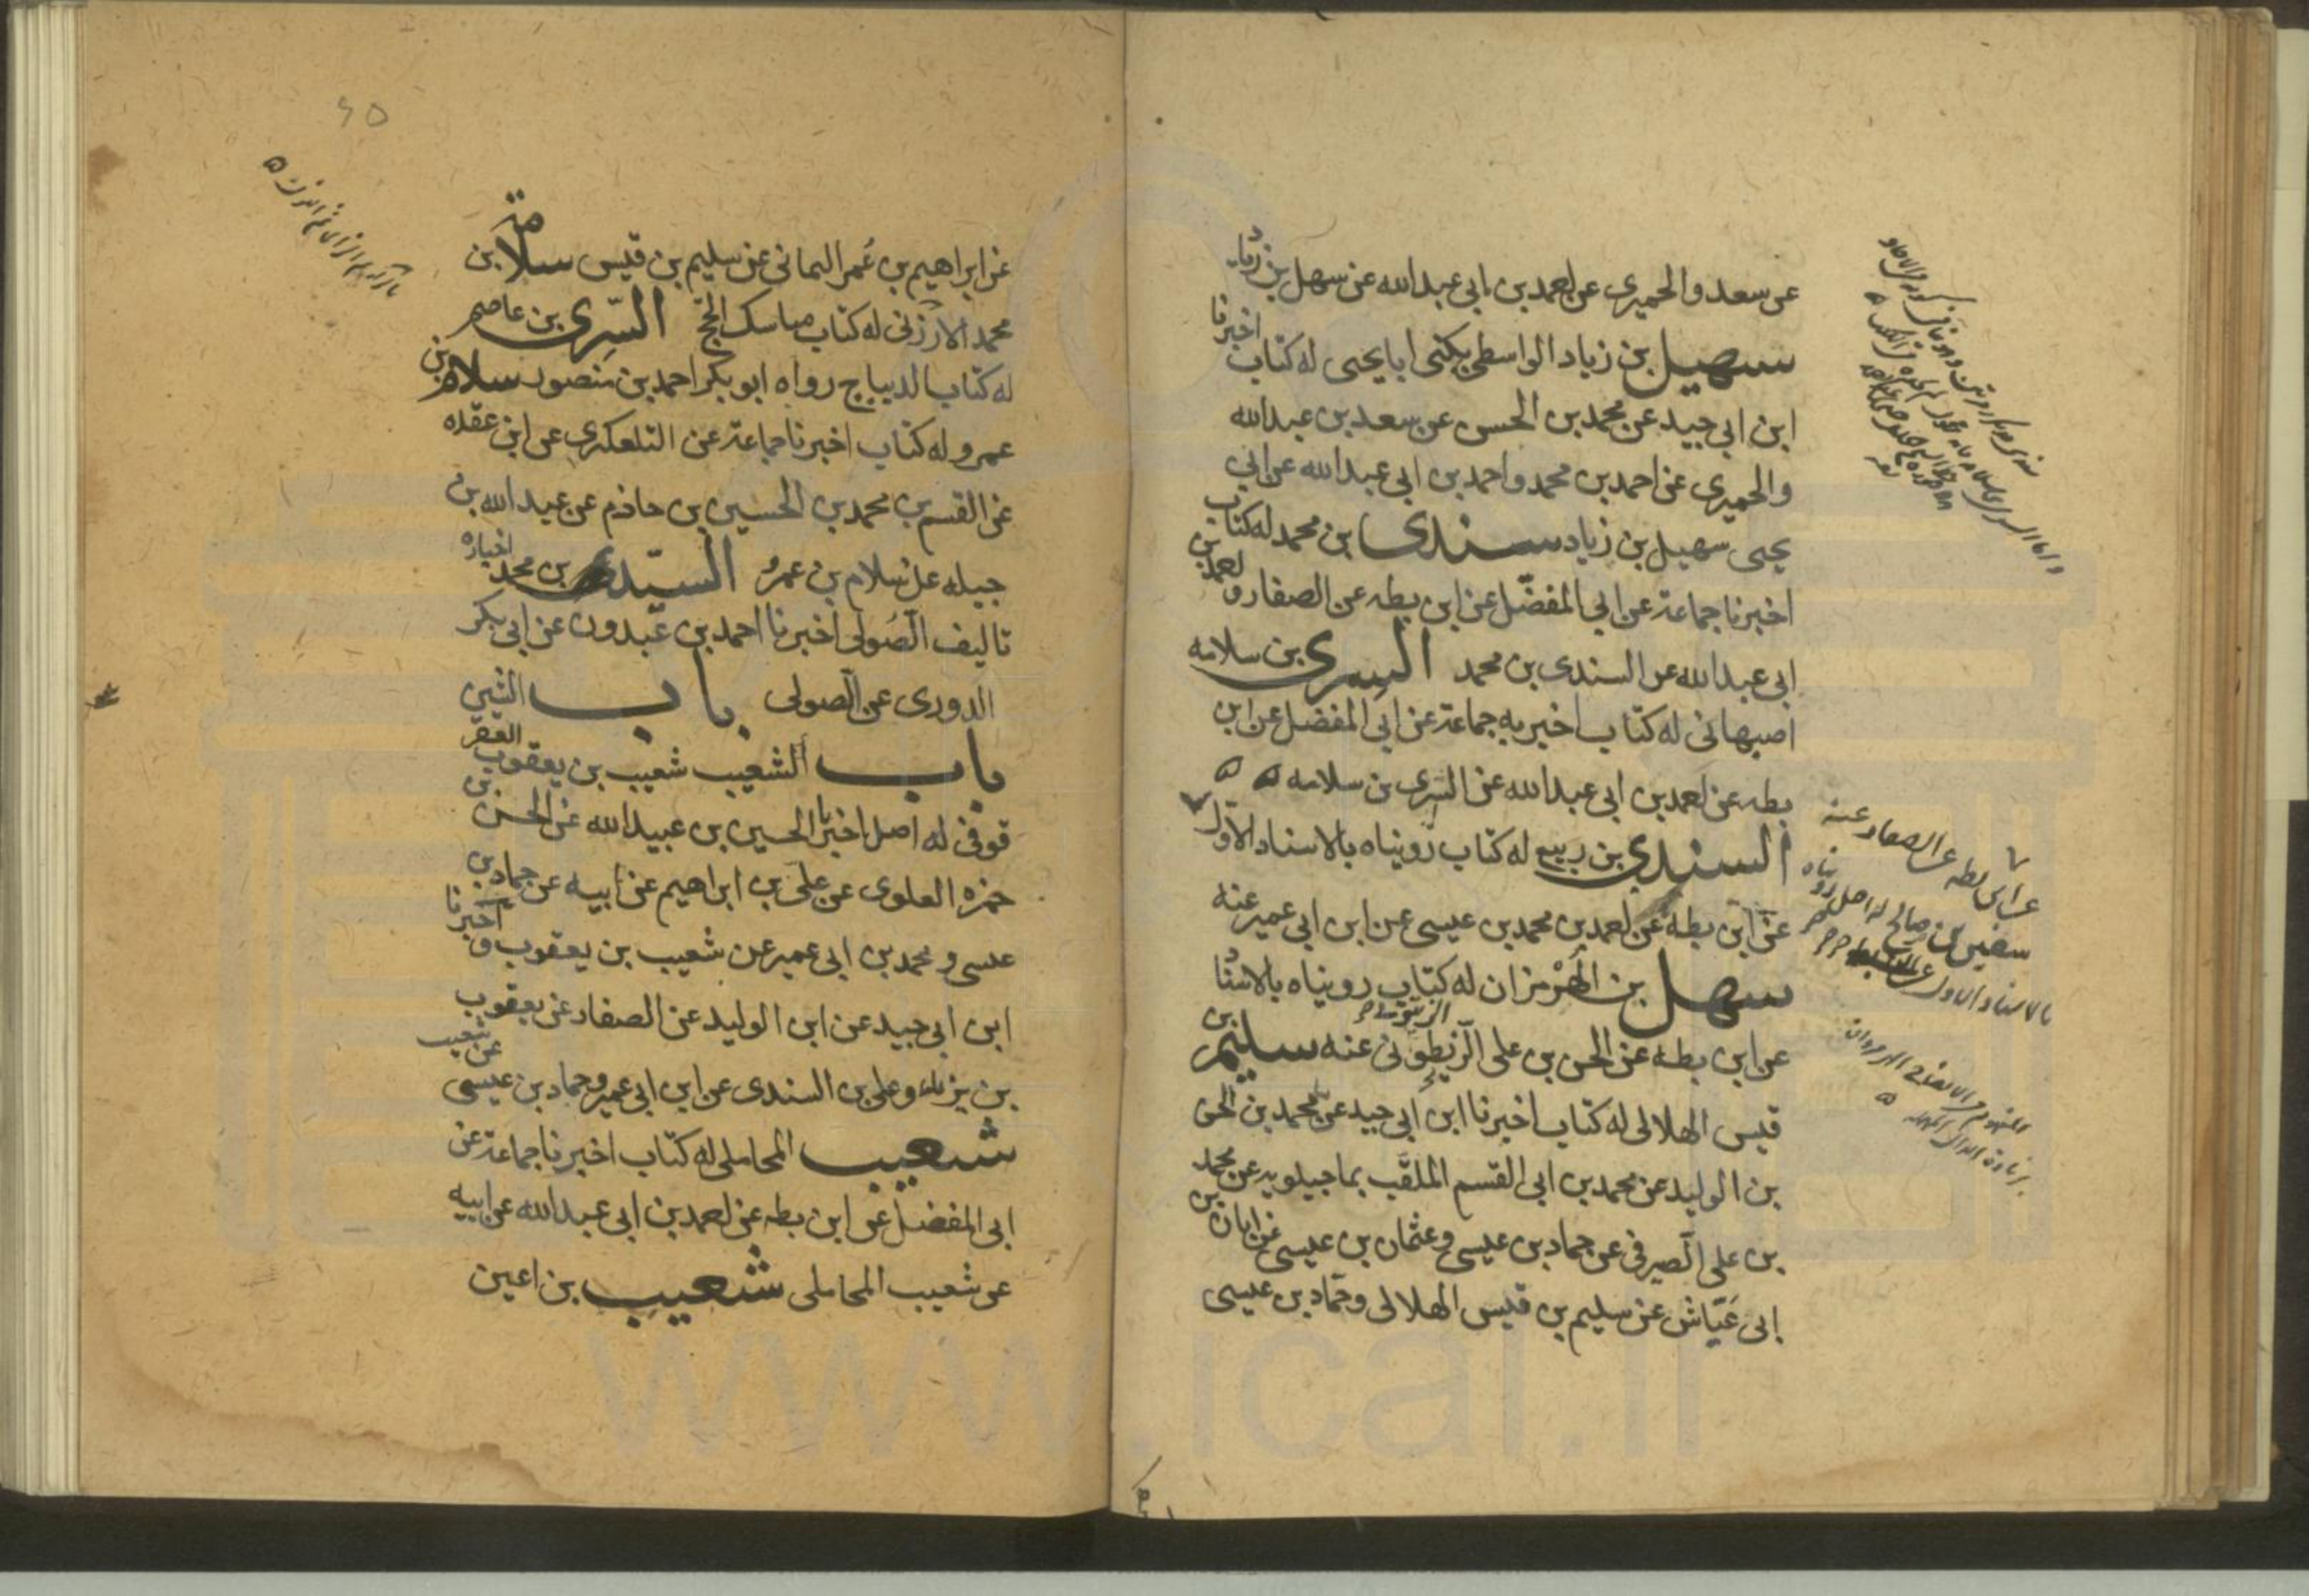 عن سعد والحميرى عن احمد بن ابى عبدالله عن سهل بن زياد
سهيل بن زياد الواسطى يكنى ابا يحيى له كتاب اخبرنا
ابن ابى جيد عن محمد بن الحسن عن سعد بن عبدالله
والحميرى عن احمد بن محمد واحمد بن ابى عبدالله عن ابى
يحيى سهيل بن زياد سندى بن محمد له كتاب
اخبرنا جماعة عن ابى المفضّل عن ابن بطه عن الصفار و احمد بن
ابى عبدالله عن السندى بن محمد السرى بن سلامه
اصبهانى له كتاب اخبر به جماعة عن ابى المفضل عن ابن
بطه عن احمد بن ابى عبدالله عن السرى بن سلامه
السندى بن ربيع له كتاب رويناه بالاسناد الاول
عن ابن بطه عن احمد بن محمد بن عيسى عن ابن ابى عمير عنه
سهل بن الهُرْمزان له كتاب رويناه بالاسناد
عن ابن بطه عن الحسن بن على الزيتونى عنه سليم بن
قيس الهلالى له كتاب اخبرنا ابن ابى جيد عن محمد بن الحسن
بن الوليد عن محمد بن ابى القسم الملقّب بماجيلويه عن محمد
بن على الصيرفى عن حماد بن عيسى وعثمان بن عيسى عن ابان بن
ابى عَيّاش عن سليم بن قيس الهلالى وحمّاد بن عيسى
عن ابن بطه عن الصفار عنه
سفين بن صالح له اصل رويناه
بالاسناد الاول عن
٤٥
عن ابراهيم بن عُمر اليمانى عن سليم بن قيس سلامة بن
محمد الارزنى له كتاب مناسك الحج السّرِى بن عاصم
له كتاب الديباج رواه ابو بكر احمد بن منصور سلام بن
عمرو له كتاب اخبرنا جماعة عن التلعكبرى عن ابن عقده
عن القسم بن محمد بن الحسين بن حازم عن عبدالله بن
جبله عن سلام بن عمرو السيّد بن محمد اخباره
تاليف الصُولى اخبرنا احمد بن عبدون عن ابى بكر
الدورى عن الصولى باب الشين
باب الشعيب شعيب بن يعقوب العقر
قوفى له اصل اخبرنا الحسين بن عبيدالله عن الحسن بن
حمزه العلوى عن على بن ابراهيم عن ابيه عن حماد بن
عيسى و محمد بن ابى عمير عن شعيب بن يعقوب و اخبرنا
ابن ابى جيد عن ابن الوليد عن الصفار عن يعقوب
بن يزيد وعلى بن السندى عن ابن ابى عمير وحماد بن عيسى عن شعيب
شعيب المحاملى له كتاب اخبرنا جماعة عن
ابى المفضل عن ابن بطه عن احمد بن ابى عبدالله عن ابيه
عن شعيب المحاملى شعيب بن اعين
www.ical.ir